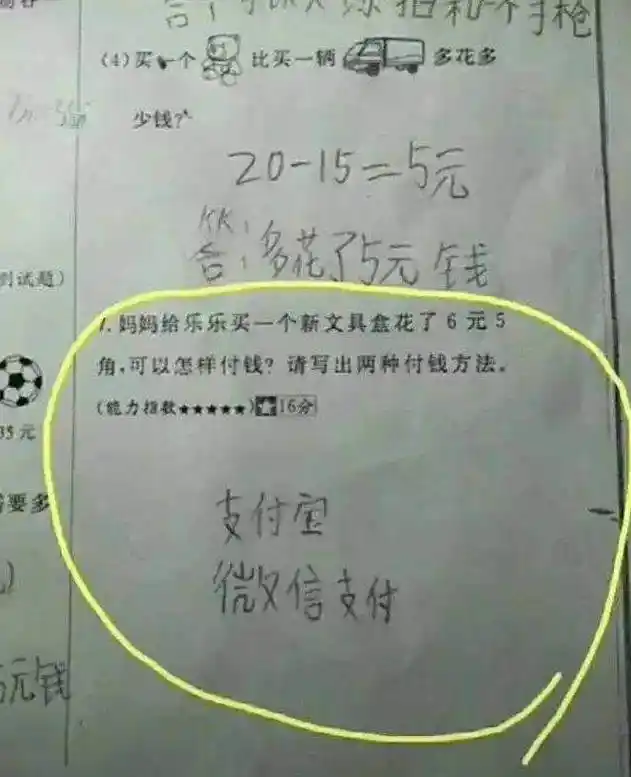 (4)买一个 比买一辆 多花多
少钱?
20-15=5元
答:多花了5元钱
7.妈妈给乐乐买一个新文具盒花了6元5
角,可以怎样付钱?请写出两种付钱方法。
(能力指数★★★★★)★16分
支付宝
微信支付
到试题)
35元
需要多
元钱